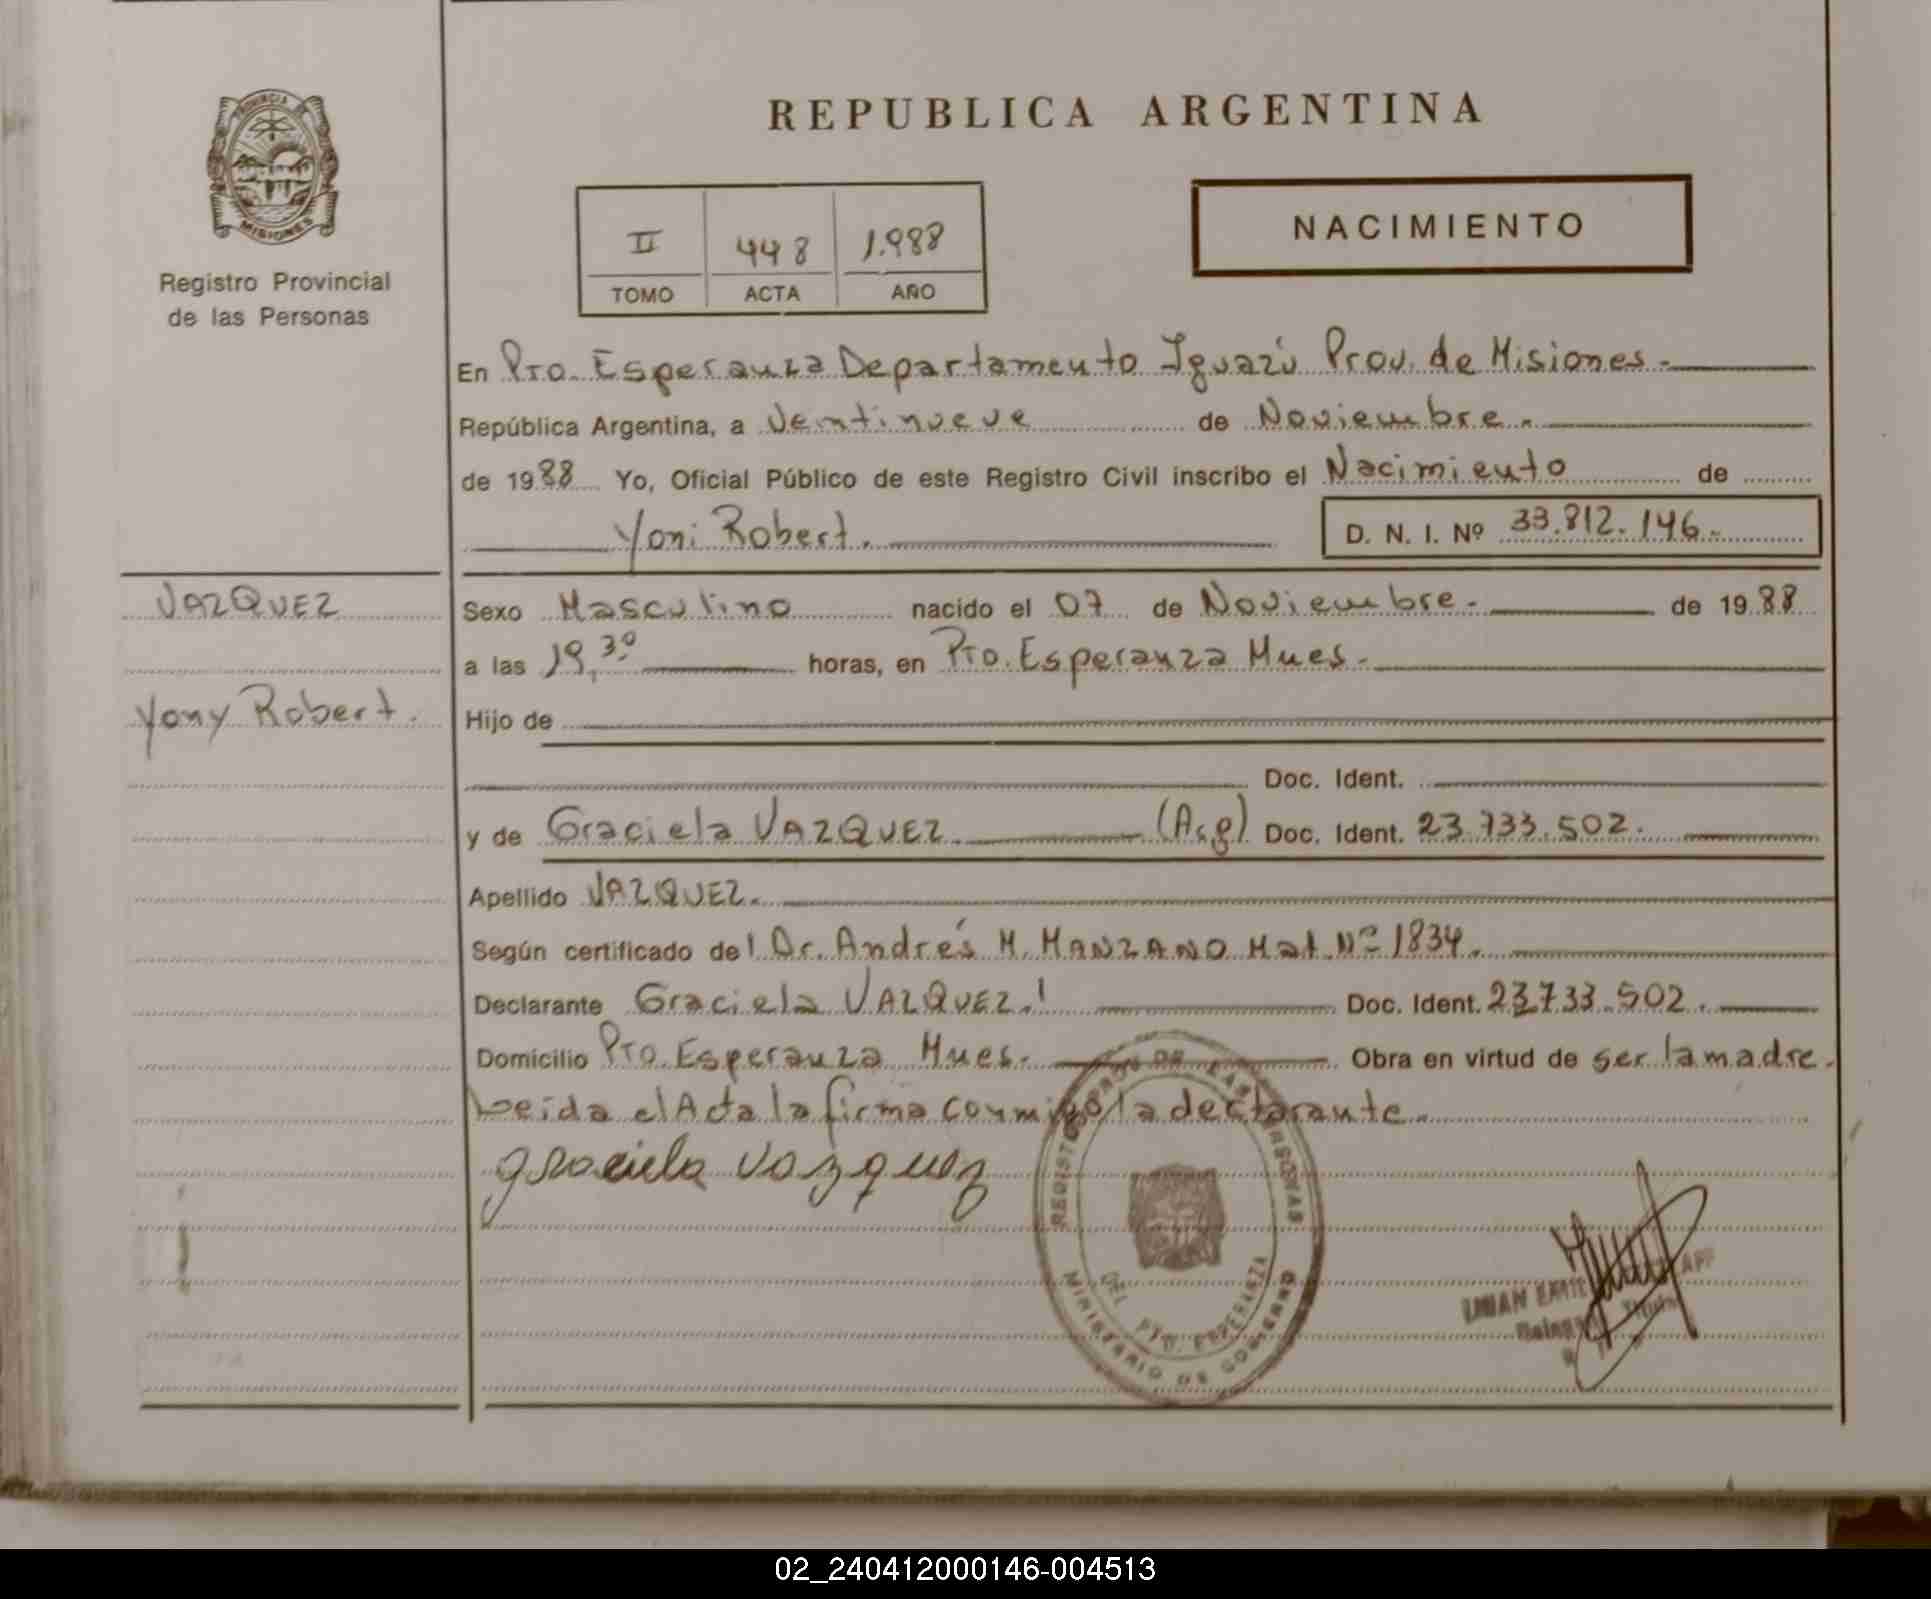 PROVINCIA DE
MISIONES
Registro Provincial
de las Personas
REPUBLICA ARGENTINA
NACIMIENTO
II 448 1.988
TOMO ACTA AÑO
En Pto. Esperanza Departamento Iguazú Prov. de Misiones.-
República Argentina, a Ventinueve de Noviembre.-
de 1988 Yo, Oficial Público de este Registro Civil inscribo el Nacimiento de
Yoni Robert. D. N. I. Nº 33.812.146.-
VAZQUEZ
Yony Robert.
Sexo Masculino nacido el 07 de Noviembre.- de 1988
a las 19,30 horas, en Pto. Esperanza Mnes.-
Hijo de
Doc. Ident.
y de Graciela VAZQUEZ. (Arg) Doc. Ident. 23.733.502.
Apellido VAZQUEZ.
Según certificado del Dr. Andrés M. MANZANO Mat. Nº 1834.
Declarante Graciela VAZQUEZ. Doc. Ident. 23.733.502.
Domicilio Pto. Esperanza Mnes.- Obra en virtud de ser la madre.
Leida el Acta la firma conmigo la declarante.
graciela vazquez
REGISTRO PROV. DE LAS PERSONAS
DEL PTO. ESPERANZA
MINISTERIO DE GOBIERNO
02_240412000146-004513